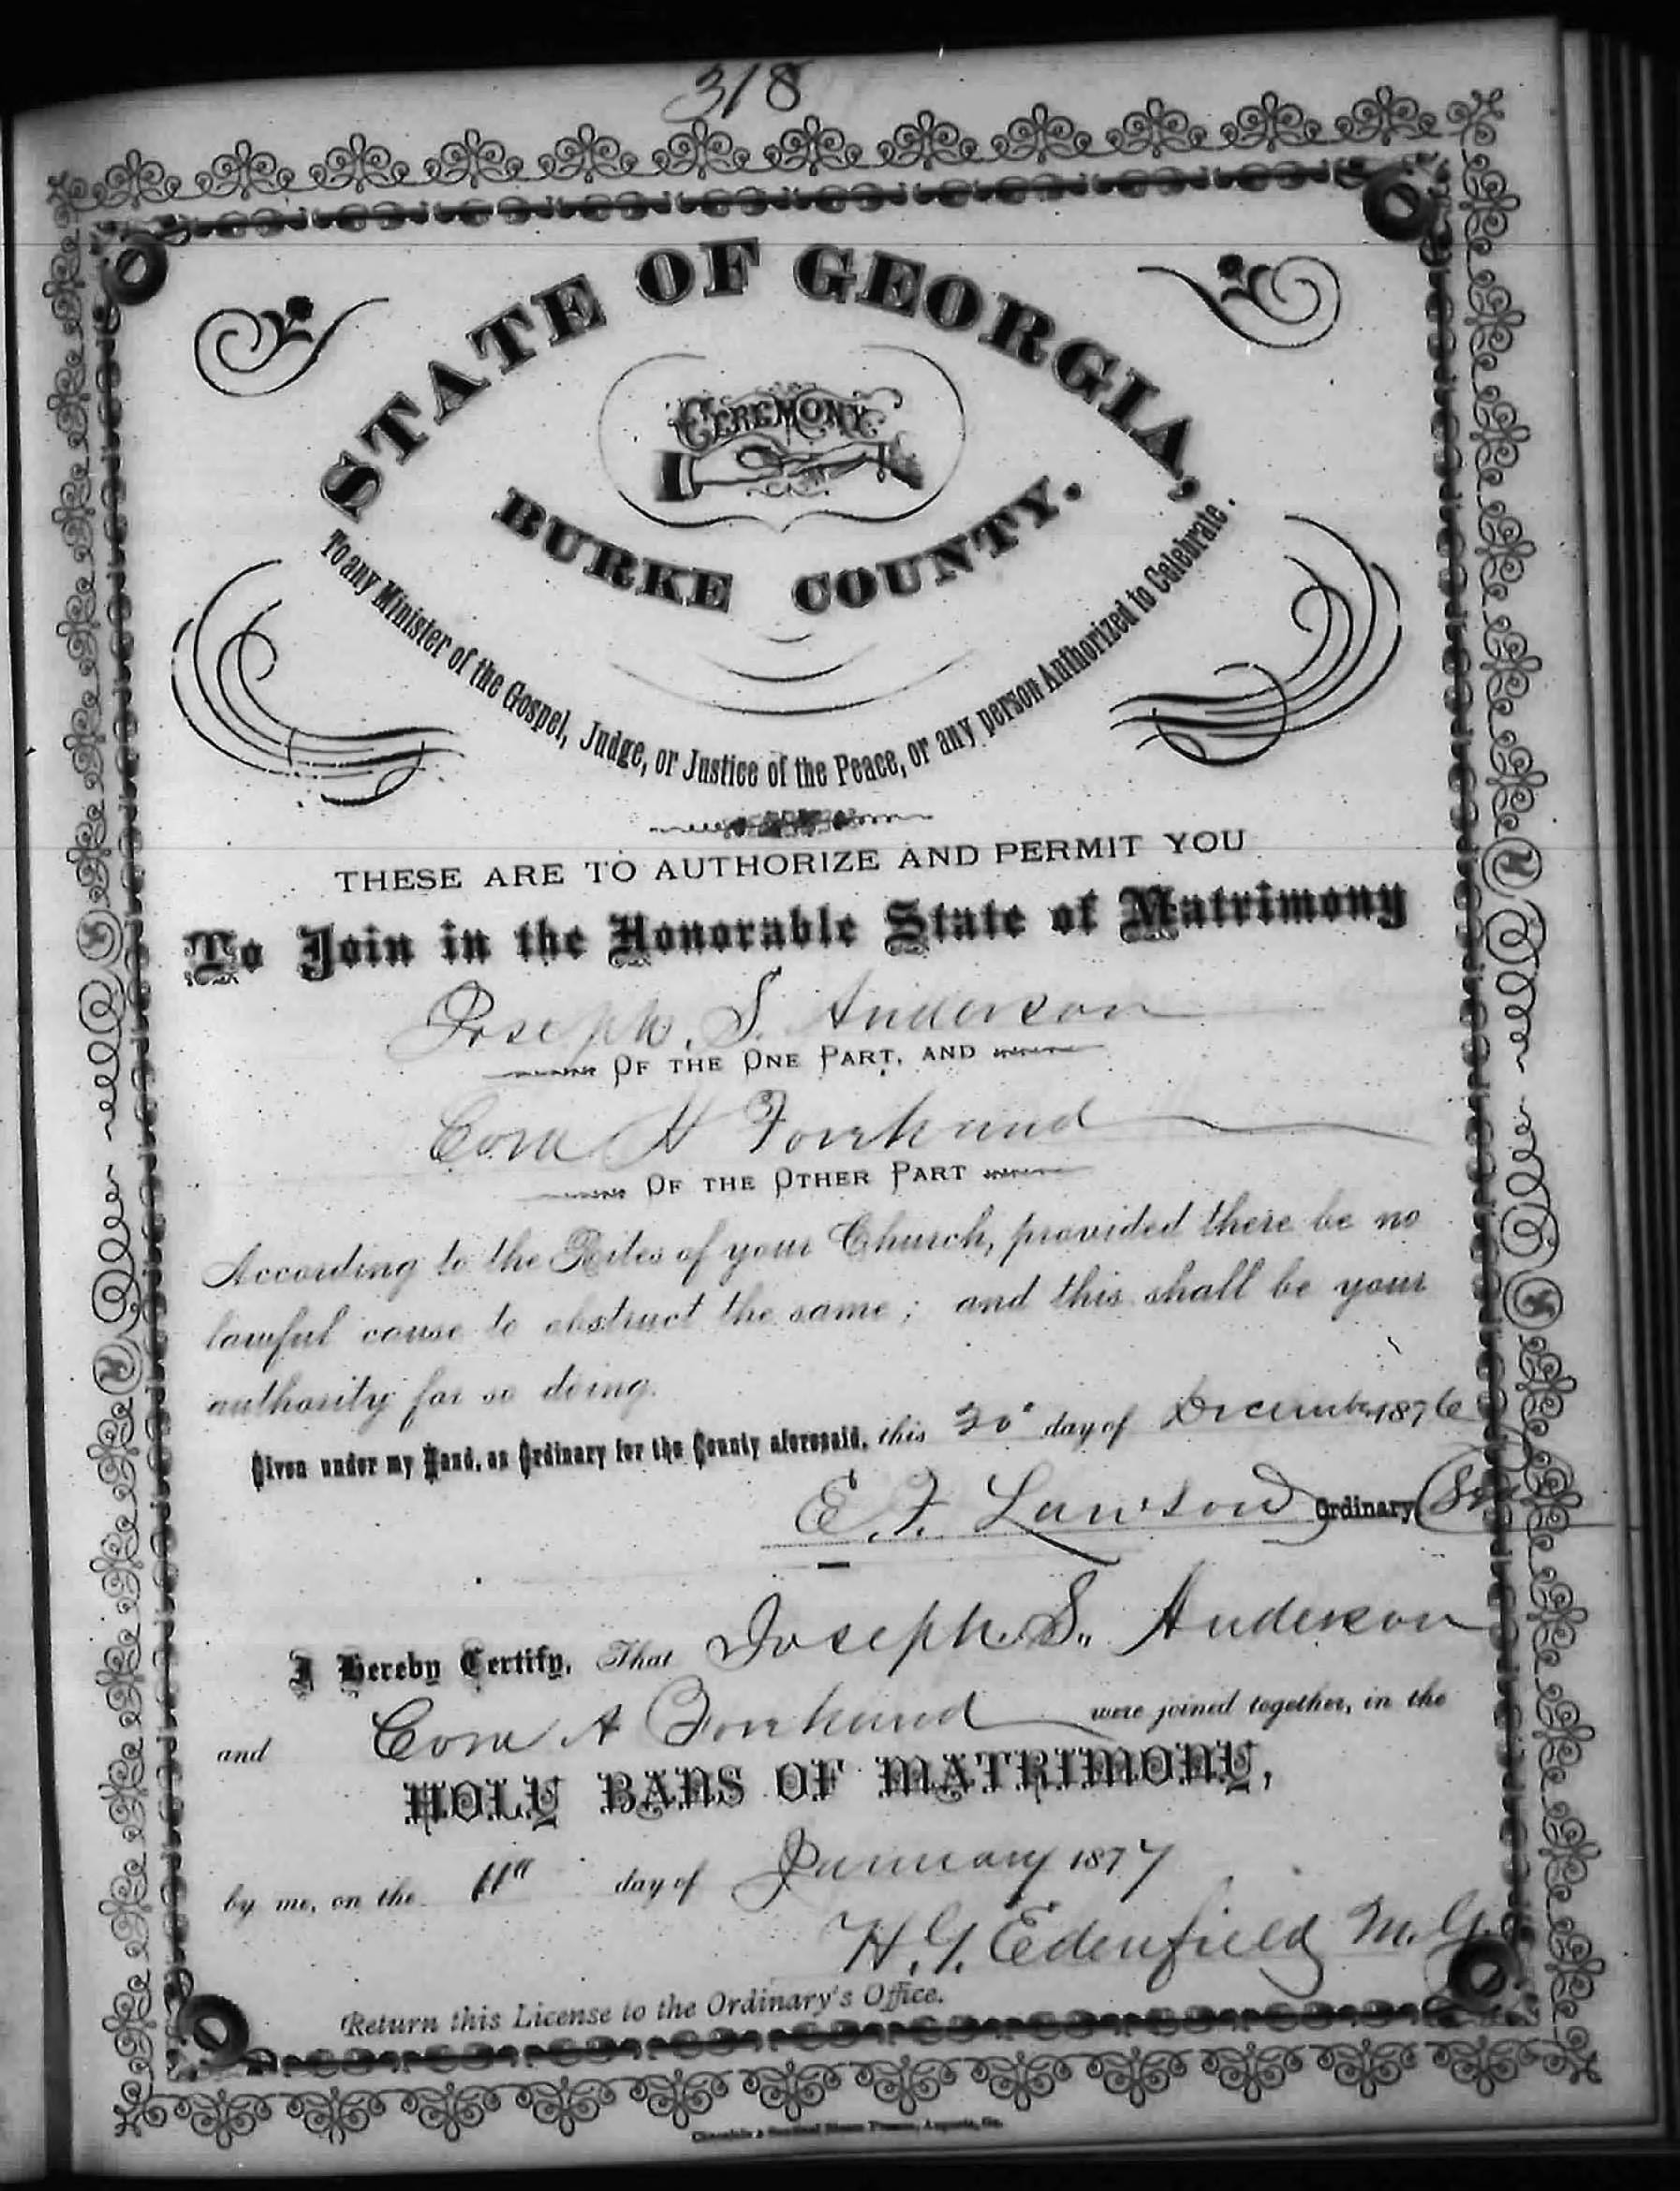 318
STATE OF GEORGIA,
CEREMONY
BURKE COUNTY.
To any Minister of the Gospel, Judge, or Justice of the Peace, or any person Authorized to Celebrate.
THESE ARE TO AUTHORIZE AND PERMIT YOU
To Join in the Honorable State of Matrimony
Joseph. S. Anderson
OF THE ONE PART, AND
Cora A Forehand
OF THE OTHER PART
According to the Rites of your Church, provided there be no
lawful cause to obstruct the same; and this shall be your
authority for so doing.
Given under my Hand, as Ordinary for the County aforesaid, this 20" day of December 1876
E. F. Lawson Ordinary
I Hereby Certify, That Joseph. S. Anderson
and Cora A Forehand were joined together, in the
HOLY BANS OF MATRIMONY,
by me, on the 11th day of January 1877
H. G. Edenfield M. G.
Return this License to the Ordinary's Office.
Chronicle & Sentinel Steam Presses, Augusta, Ga.